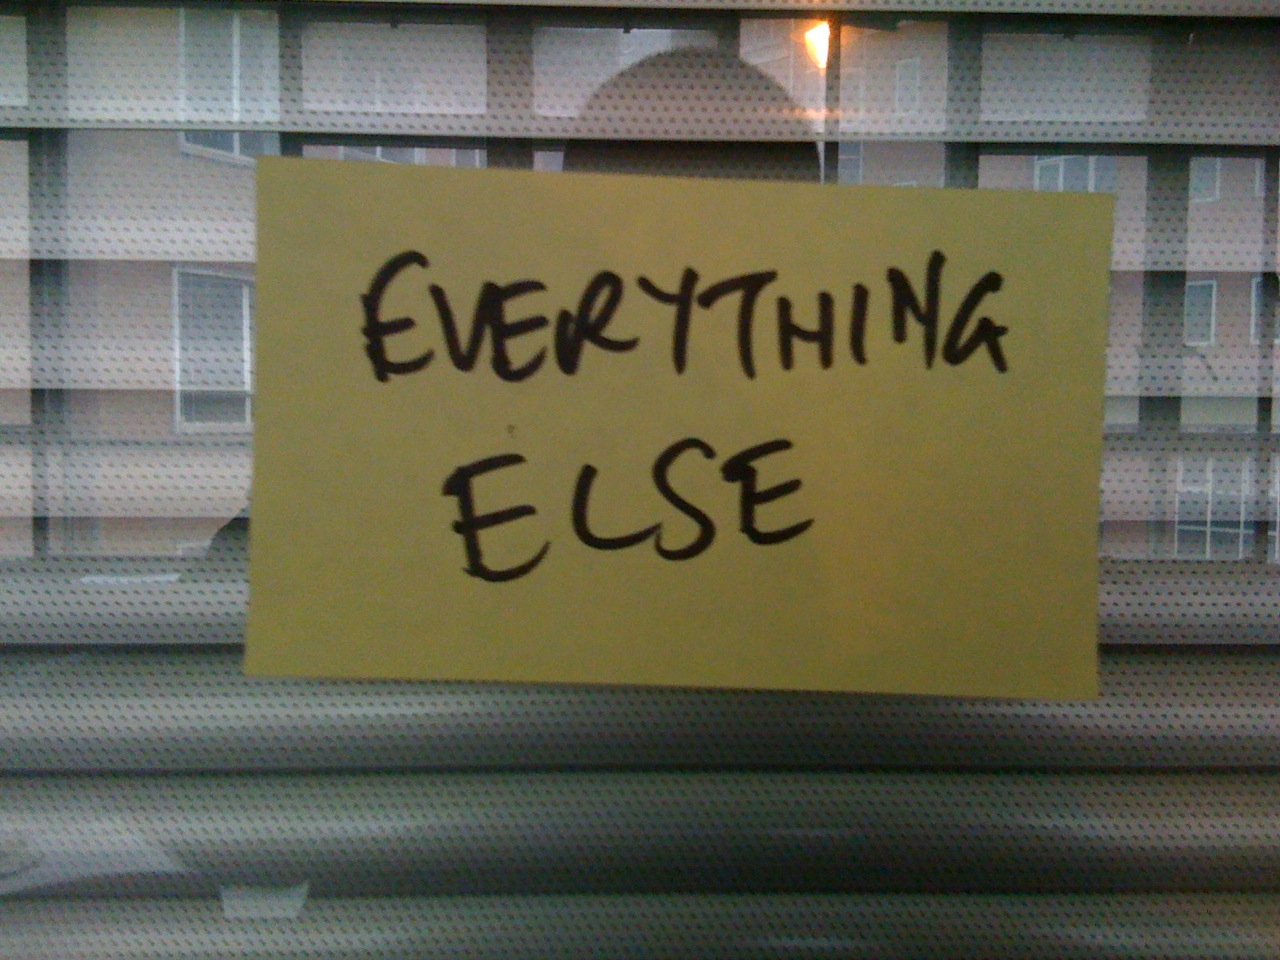 EVERYTHING
ELSE